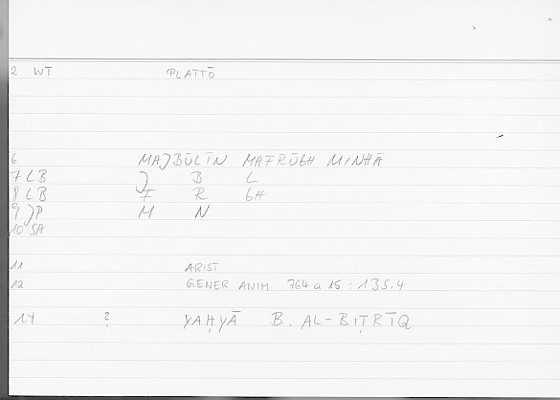 2 WT̄ PLATTŌ
6 MAJBŪLĪN MAFRŪGH MINHĀ
7 LB J B L
8 LB F R GH
9 JP M N
10 SA
11 ARIST
12 GENER ANIM 764 a 15 : 135.4
14 ? YAḤYĀ B. AL-BIṬRĪQ